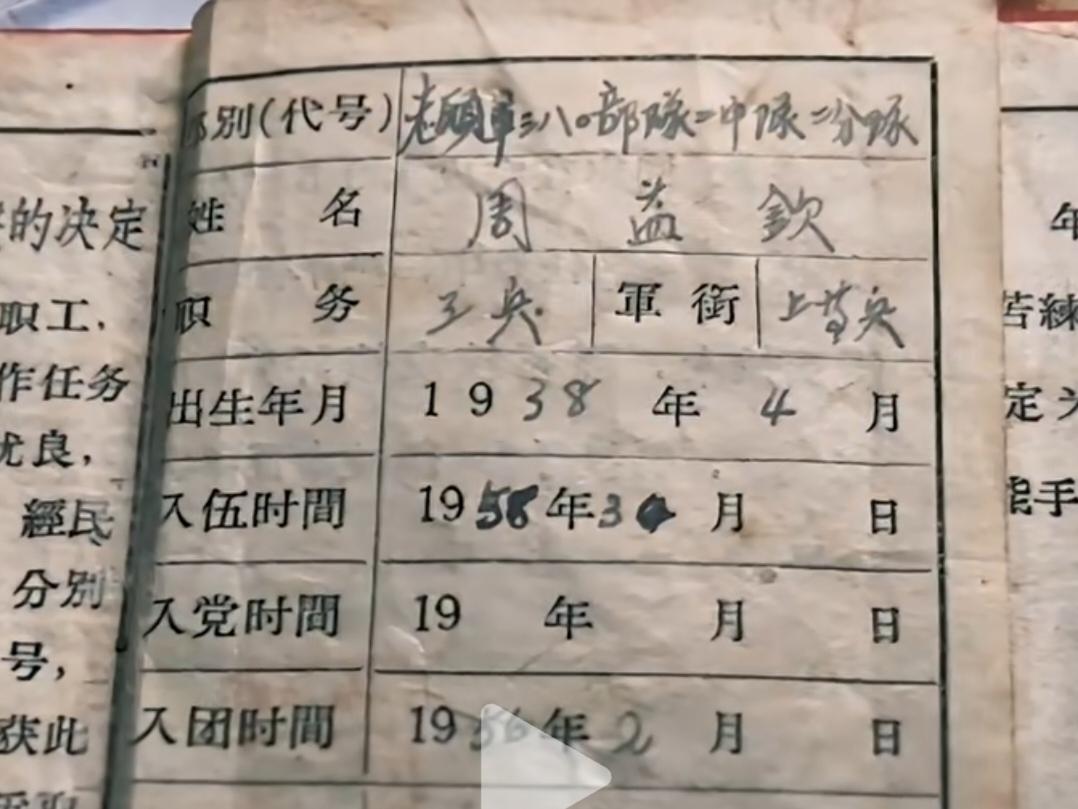 別(代号) 三八〇部隊二中隊二分隊
姓 名 周益欽
职 务 工兵 軍銜 上等兵
出生年月 1938年4月
入伍时間 1958年3 月 日
入党时間 19 年 月 日
入团时間 1956年2月 日
的决定
职工,
作任务
优良,
經民
分别
号,
获此
年
苦練
定
能手